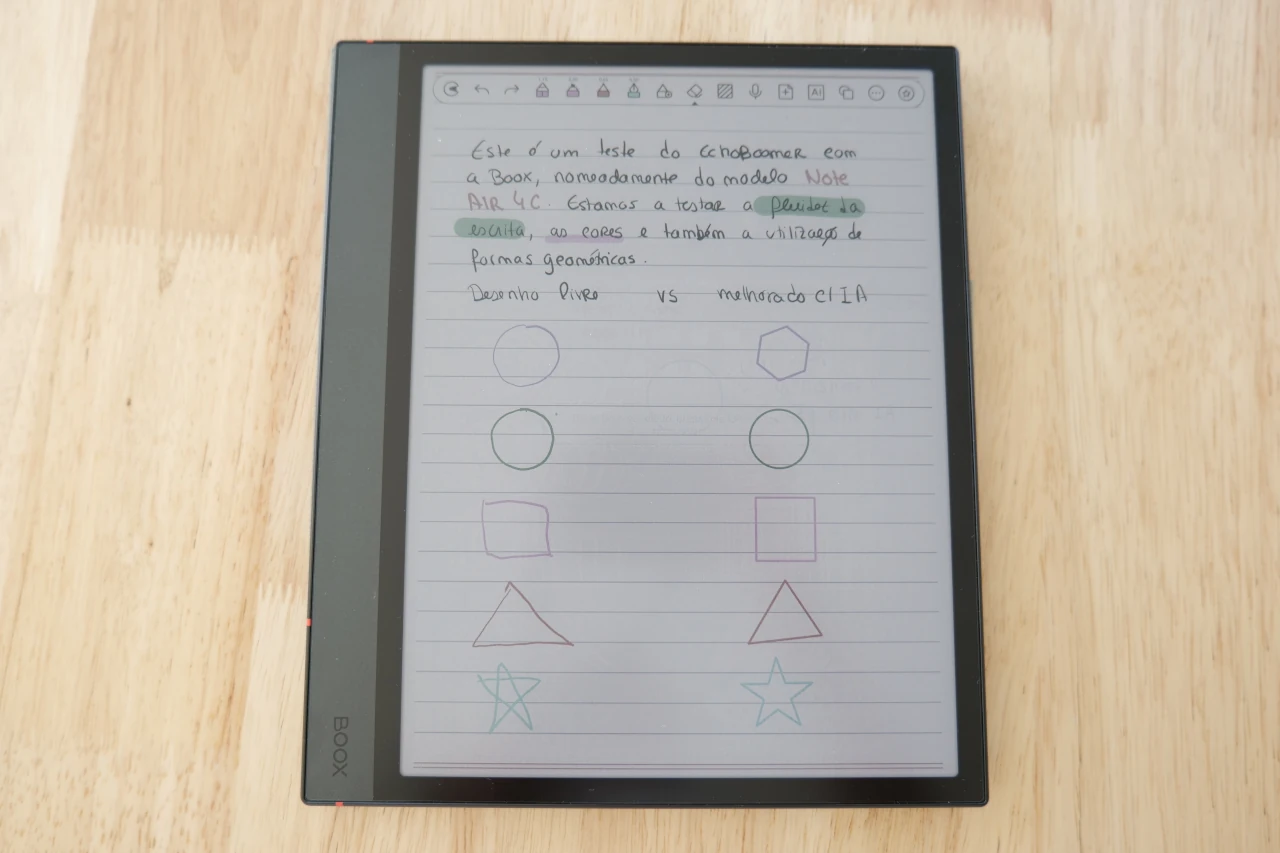 Este é um teste do EchoBoomer com
a Boox, nomeadamente do modelo Note
AIR 4C. Estamos a testar a fluidez da
escrita, as cores e também a utilização de
formas geométricas.
Desenho livre vs melhorado c/ IA
AI
BOOX